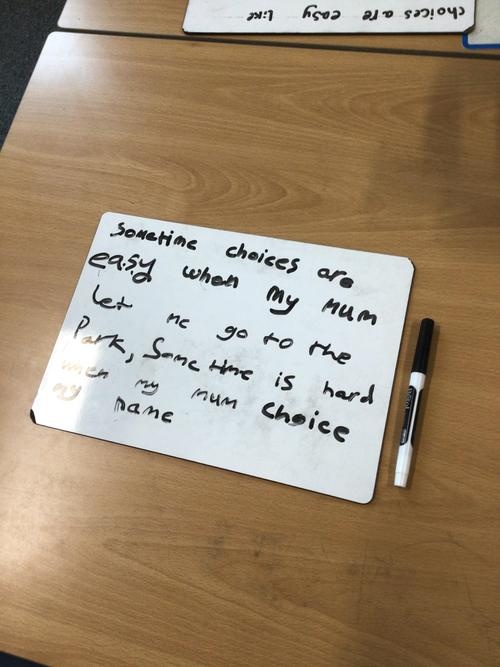 choices are easy like
Sometime choices are
easy when my mum
let me go to the
Park, Some time is hard
when my mum choice
my name